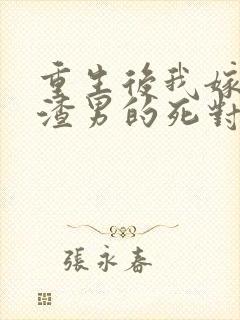 重生後我嫁
渣男的死對
張永春